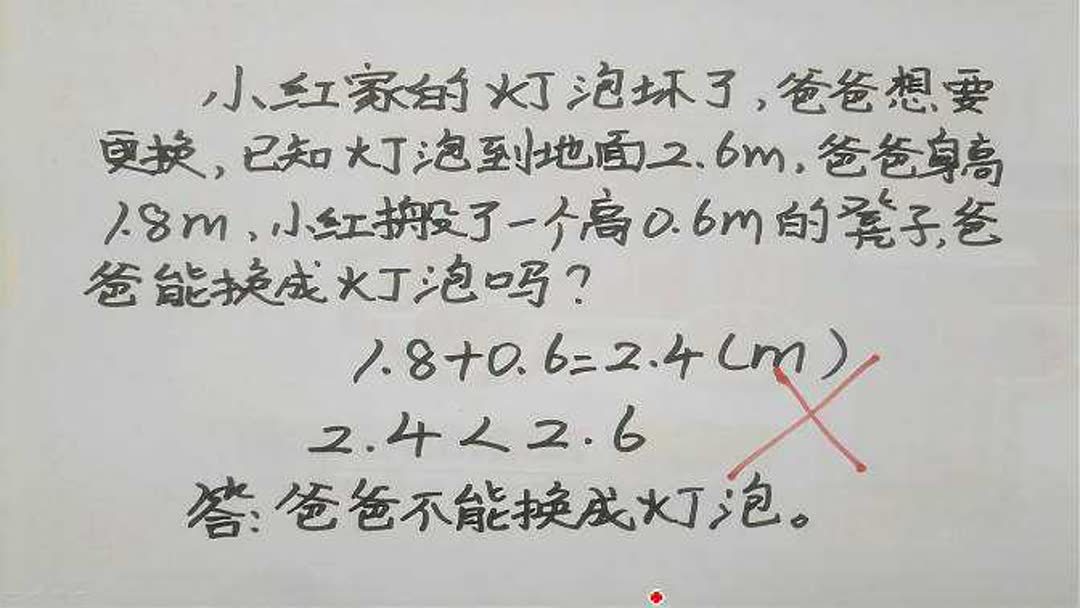 小红家的灯泡坏了,爸爸想要
更换,已知灯泡到地面2.6m,爸爸身高
1.8m,小红搬了一个高0.6m的凳子,爸
爸能换成灯泡吗?
1.8+0.6=2.4(m)
2.4<2.6
答:爸爸不能换成灯泡。